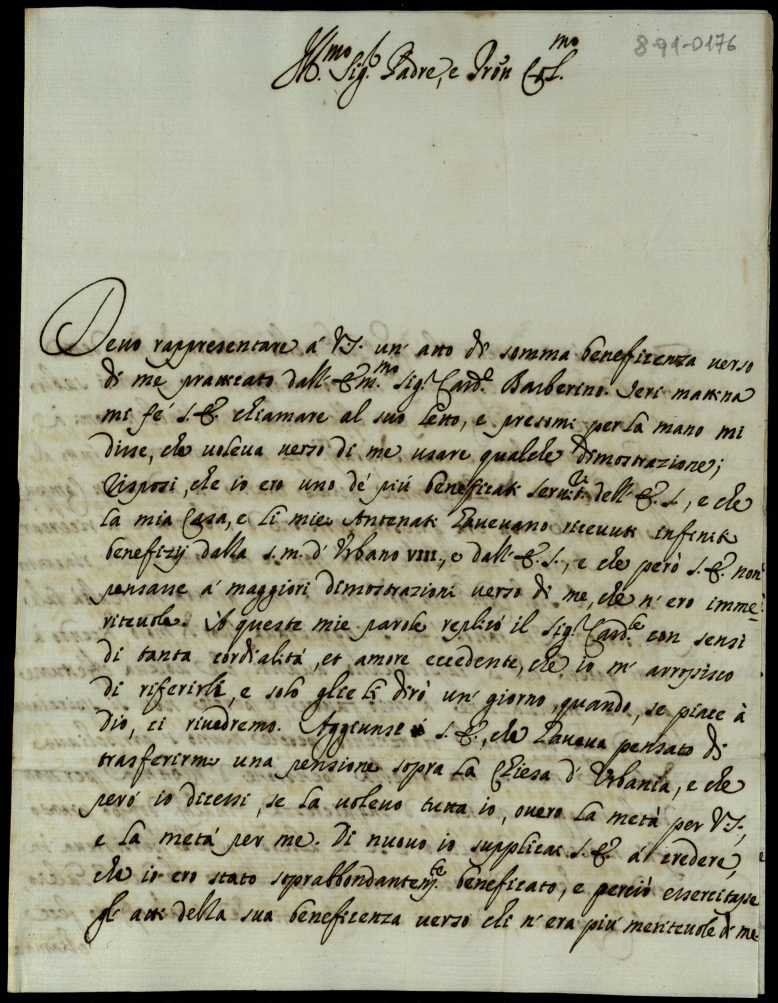 8-91-0176
Ill.mo Sig.r Padre, e Pron Col.mo
Devo rappresentare á VS. un' atto di somma beneficenza verso
di me pratticato dall' Em.mo Sig.r Card.e Barberino. Ieri mattina
mi fé S.E. chiamare al suo letto, e presomi per la mano mi
disse, che voleva verso di me usare qualche dimostrazione;
Risposi, che io ero uno dé piú beneficati serv.ri dell' E. S., e che
la mia Casa, e li miei Antenati havevano ricevuti infiniti
benefizij dalla s.m. d' Urbano VIII., e dall' E. S., e che peró S.E. non
pensasse a' maggiori dimostrazioni verso di me, che n' ero imme=
ritevole. A queste mie parole replicó il Sig.r Card.le con sensi
di tanta cordialitá, et amore eccedente, che io m' arrossisco
di riferirli, e solo glie li diró un' giorno, quando, se piace à
Dio, ci rivedremo. Aggiunse S.E., che haveva pensato di
trasferirmi una pensione sopra la Chiesa d' Urbania, e che
peró io dicessi, se la volevo tutta io, overo la metá per VS.,
e la metá per me. Di nuovo io supplicai S.E. á credere,
che io ero stato soprabbondantem.te beneficato, e perció essercitasse
gl' atti della sua beneficenza verso chi n' era piú meritevole di me.